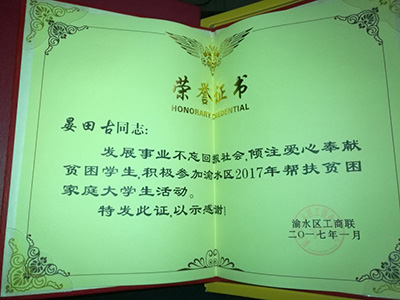 荣誉证书
HONORARY CREDENTIAL
晏田古同志:
发展事业不忘回报社会,倾注爱心奉献
贫困学生,积极参加渝水区2017年帮扶贫困
家庭大学生活动。
特发此证,以示感谢!
渝水区工商联
二〇一七年一月